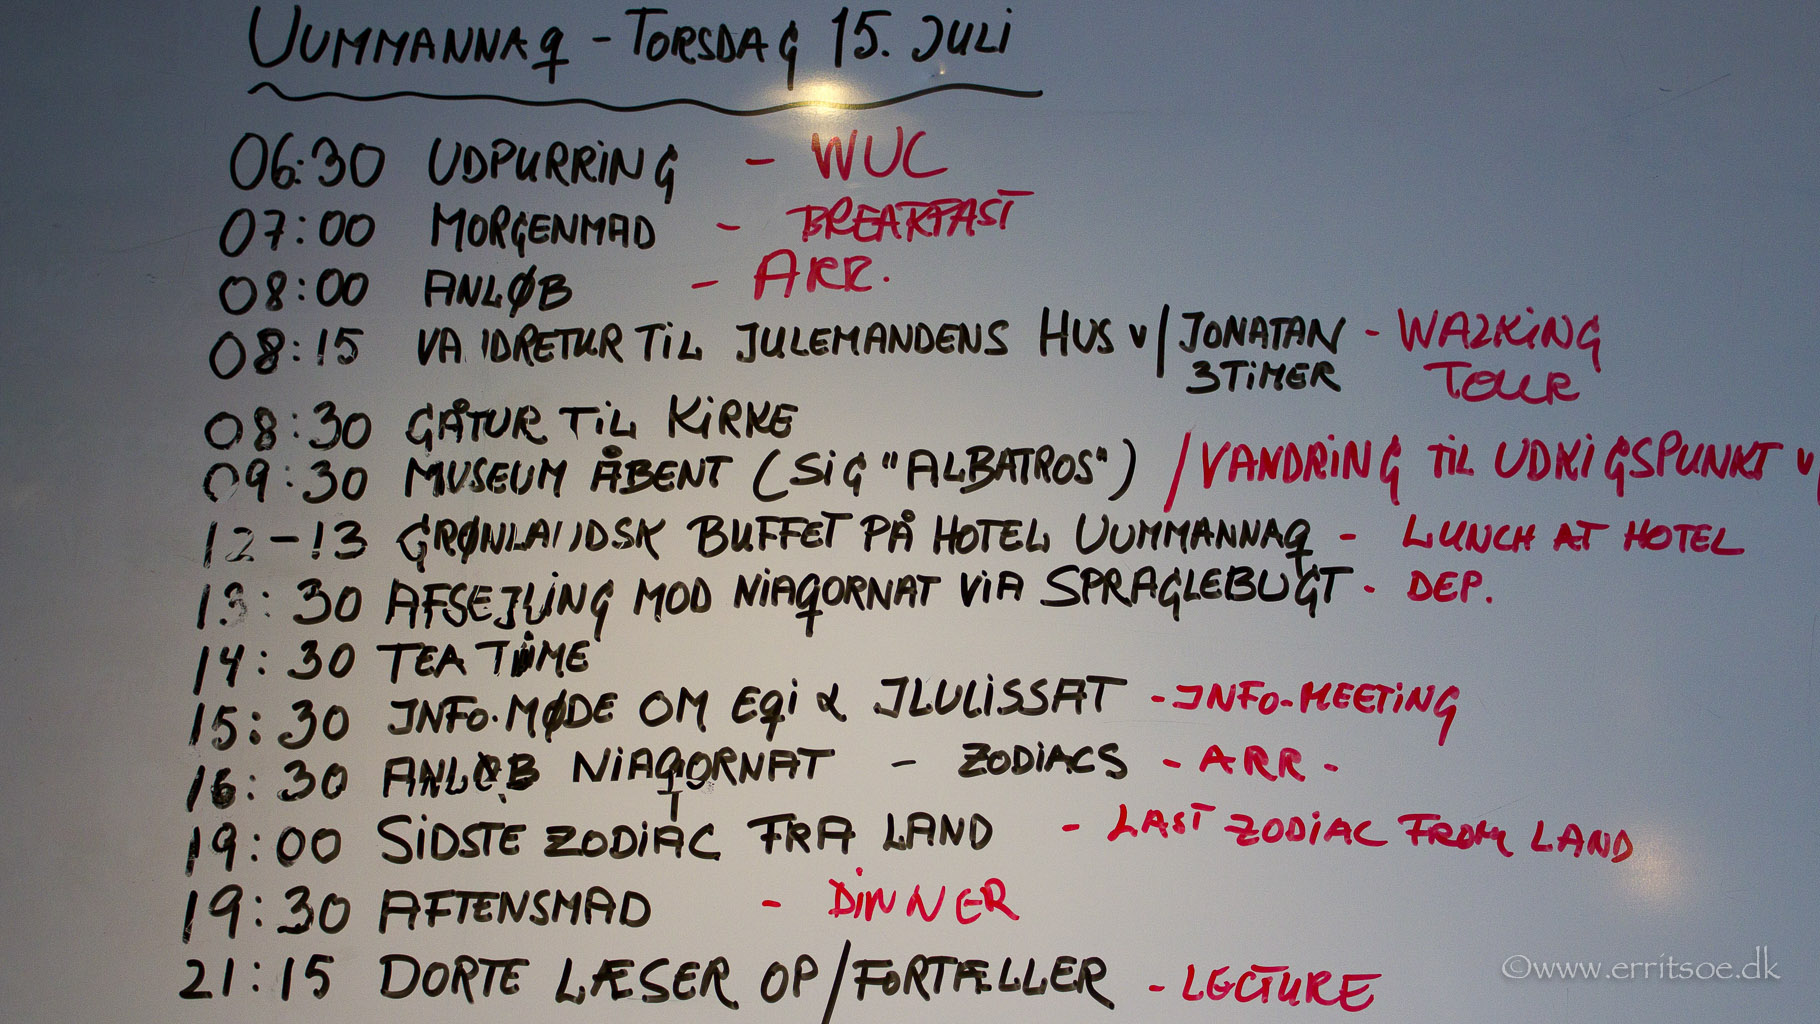 UUMMANNAQ - TORSDAG 15. JULI
06:30 UDPURRING - WUC
07:00 MORGENMAD - BREAKFAST
08:00 ANLØB - ARR.
08:15 VA IDRETUR TIL JULEMANDENS HUS V/JONATAN - WALKING
3 TIMER TOUR
08:30 GÅTUR TIL KIRKE
09:30 MUSEUM ÅBENT (SIG "ALBATROS") / VANDRING TIL UDKIGSPUNKT V/
12-13 GRØNLANDSK BUFFET PÅ HOTEL UUMMANNAQ - LUNCH AT HOTEL
13:30 AFSEJLING MOD NIAQORNAT VIA SPRAGLEBUGT - DEP.
14:30 TEA TIME
15:30 INFO.MØDE OM EQI & ILULISSAT - INFO-MEETING
16:30 ANLØB NIAQORNAT - ZODIACS - ARR -
19:00 SIDSTE ZODIAC FRA LAND - LAST ZODIAC FROM LAND
19:30 AFTENSMAD - DINNER
21:15 DORTE LÆSER OP/FORTÆLLER - LECTURE
©www.erritsoe.dk